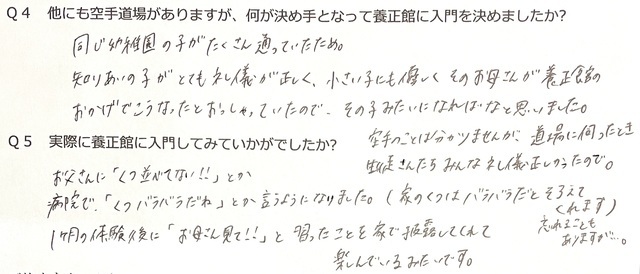 Q4 他にも空手道場がありますが、何が決め手となって養正館に入門を決めましたか?
同じ幼稚園の子がたくさん通っていたため。
知りあいの子がとても礼儀が正しく、小さい子にも優しくそのお母さんが養正館の
おかげでこうなったとおっしゃっていたので、その子みたいになればなと思いました。
空手のことは分かりませんが、道場に伺ったとき
生徒さんたちみんな礼儀正しかったので。
Q5 実際に養正館に入門してみていかがでしたか?
お父さんに「くつ並べてない!!」とか
病院で、「くつバラバラだね」とか言うようになりました。(家のくつはバラバラだとそろえて
くれます)
忘れることも
ありますが…。
1ヶ月の体験後に「お母さん見て!!」と習ったことを家で披露してくれて
楽しんでいるみたいです。